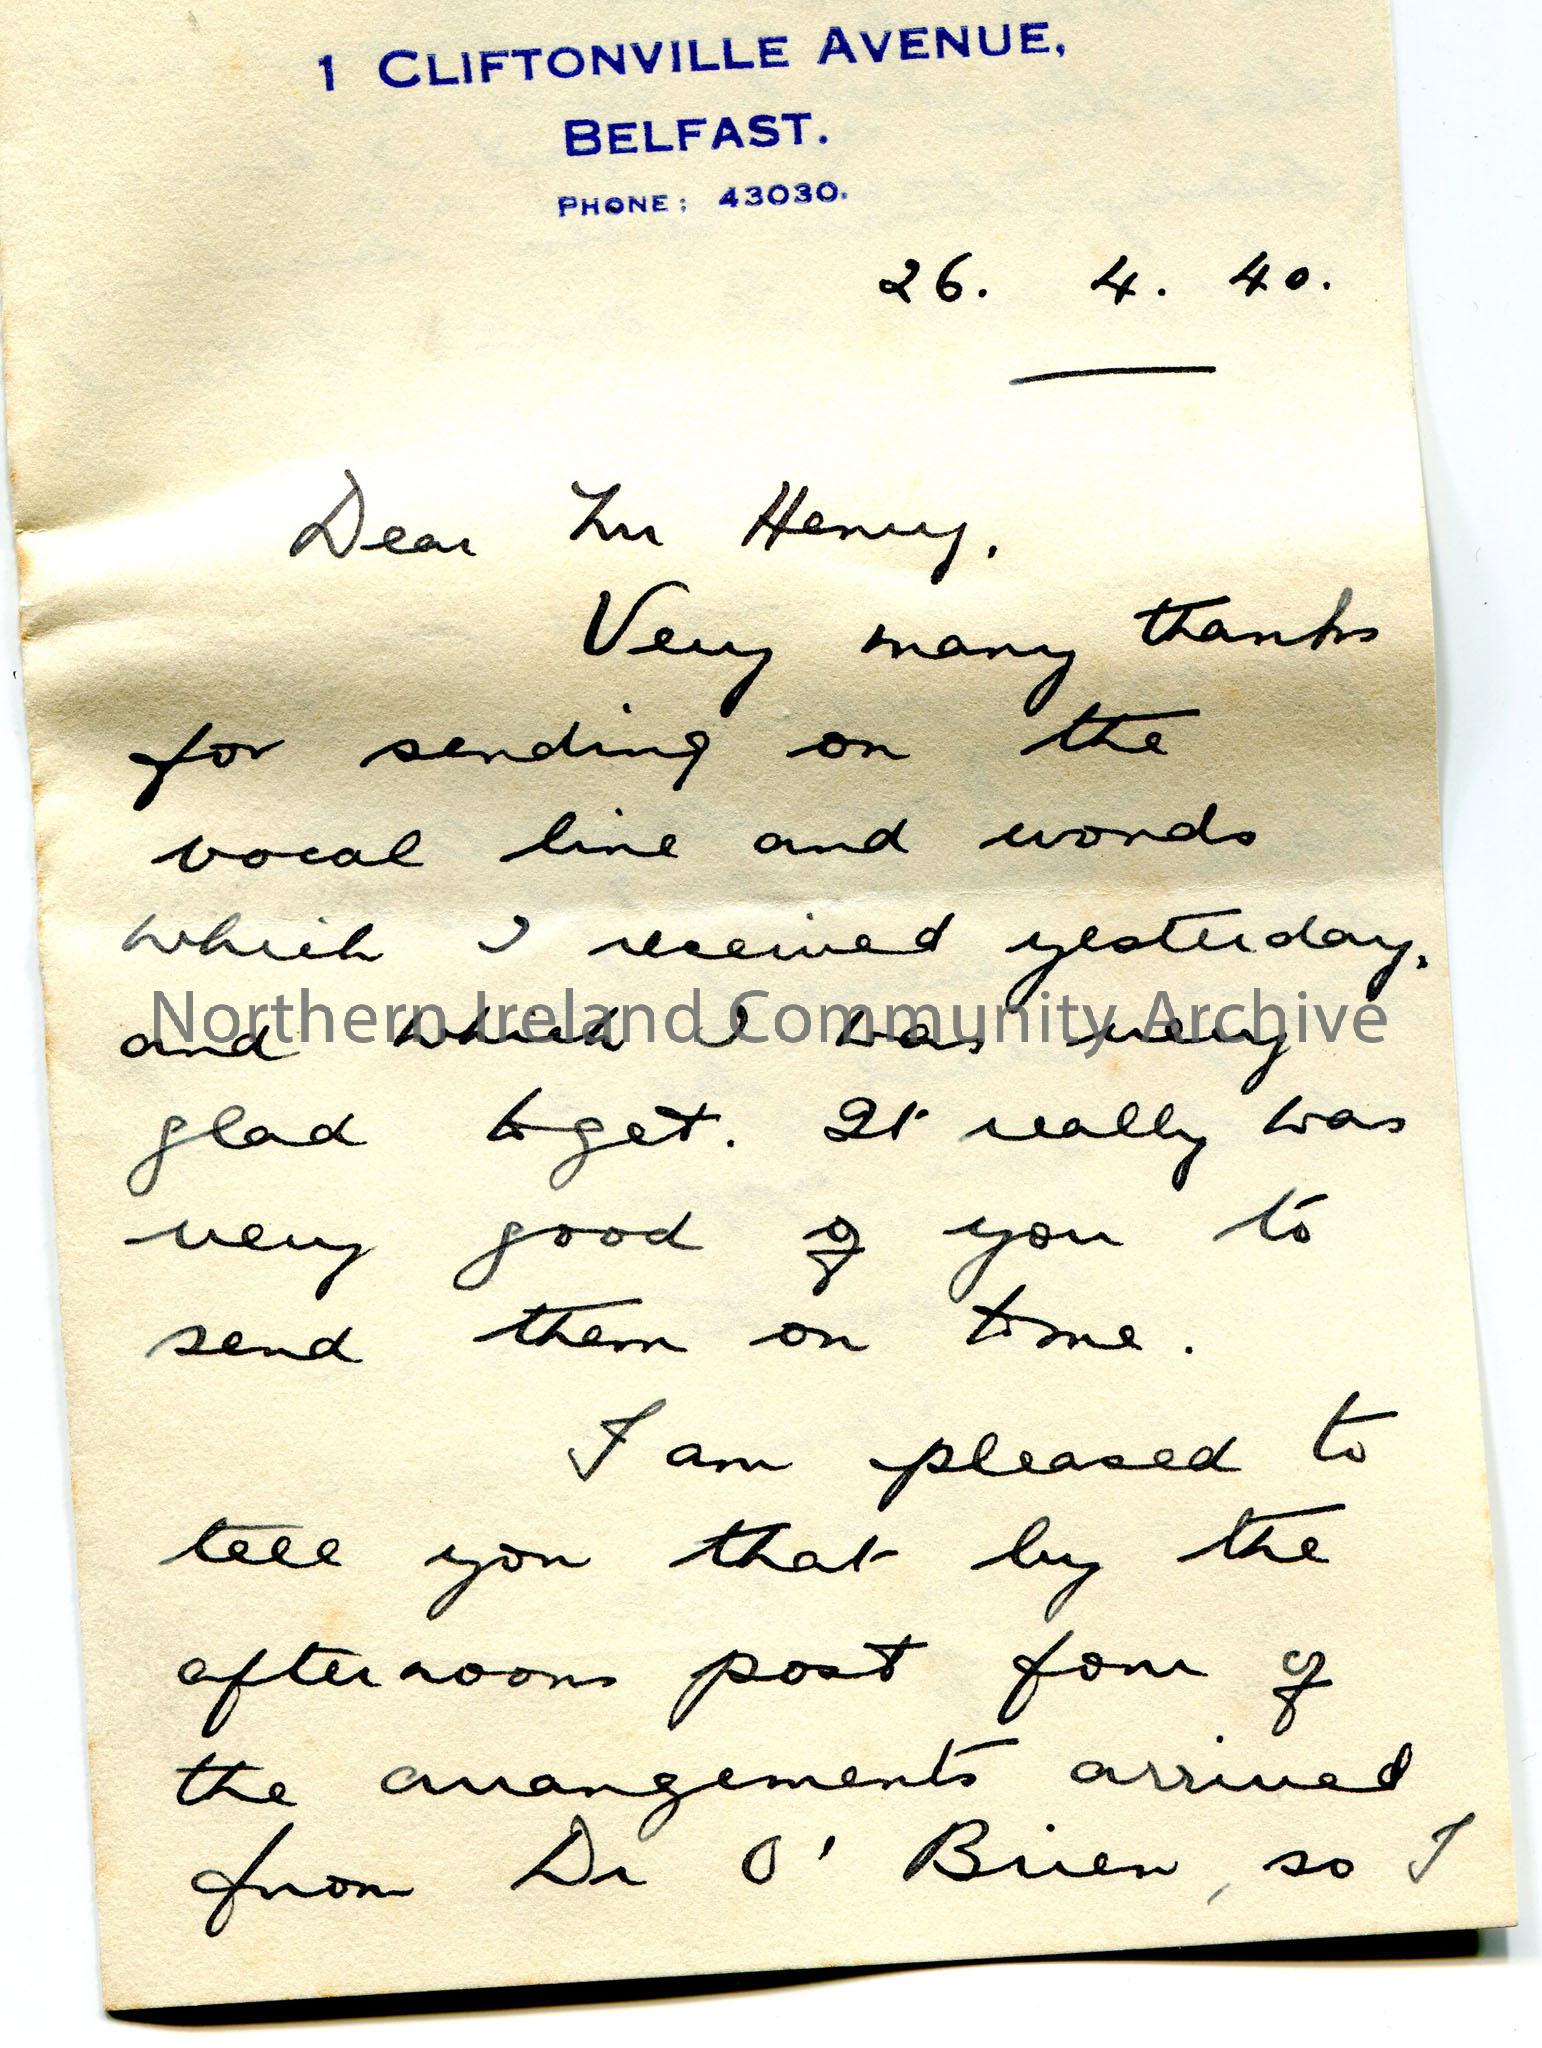 1 CLIFTONVILLE AVENUE,
BELFAST.
PHONE: 43030.
26. 4. 40.
Dear Mr Henry,
Very many thanks
for sending on the
vocal line and words
which I received yesterday,
Northern Ireland Community Archive
and which I was very
glad to get. It really was
very good of you to
send them on time.
I am pleased to
tell you that by the
afternoons post four of
the arrangements arrived
from Dr O'Brien, so I